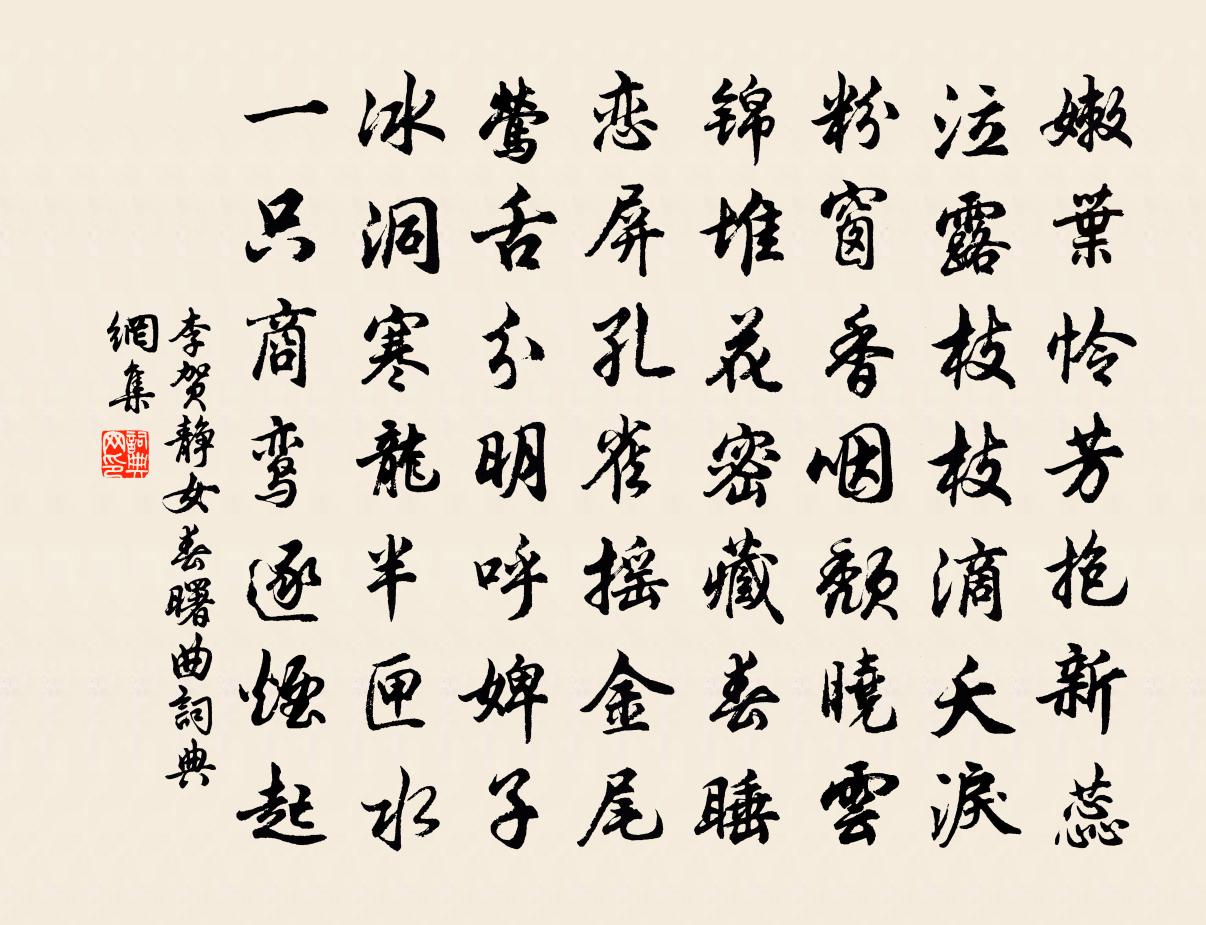 嫩葉怜芳抱新蕊
泣露枝枝滴夭淚
粉窗香咽颓曉雲
锦堆花密藏春睡
恋屏孔雀摇金尾
莺舌分明呼婢子
冰洞寒龍半匣水
一只商鸾逐煙起
李贺静女春曙曲詞典
網集
詞典网印